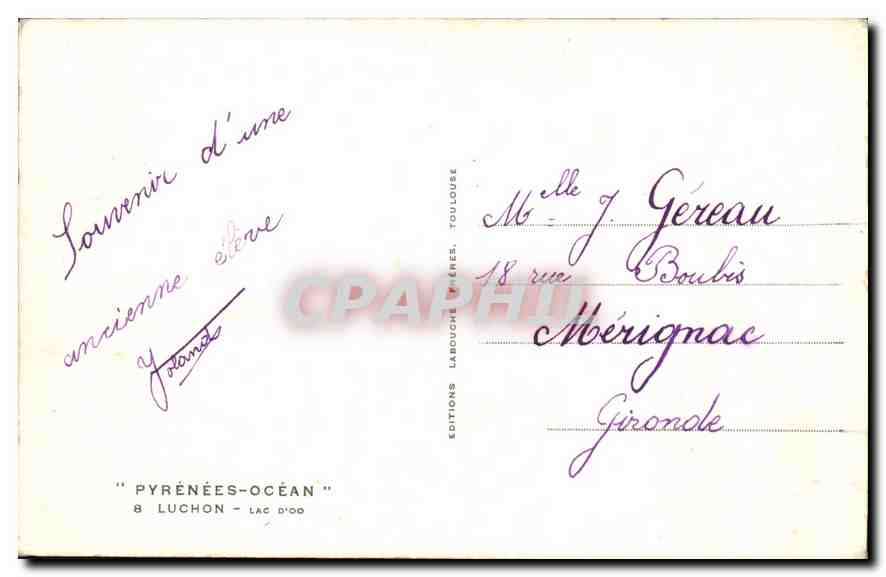 Souvenir d'une
ancienne élève
Yolande
" PYRÉNÉES-OCÉAN "
8 LUCHON - LAC D'OO
EDITIONS LABOUCHE FRÈRES, TOULOUSE
Mlle J. Géreau
18 rue Boubis
Mérignac
Gironde
CPAPHIL